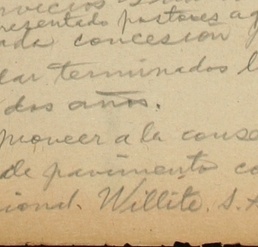 presentado postores a
concesion
terminados l
dos años.
proveer a la conse
de pavimento co
ional. Willite. S. A